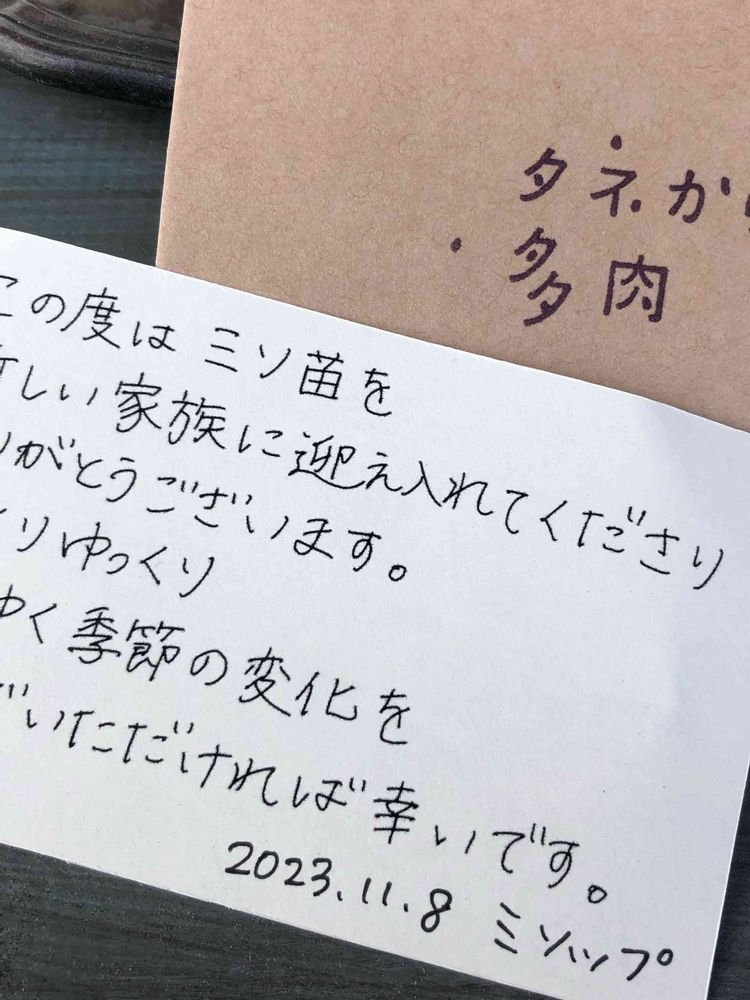 タネから
多肉
この度は ミソ苗を
新しい家族に迎え入れてくださり
りがとうございます。
りゆっくり
ゆく季節の変化を
いただければ幸いです。
2023.11.8 ミソップ